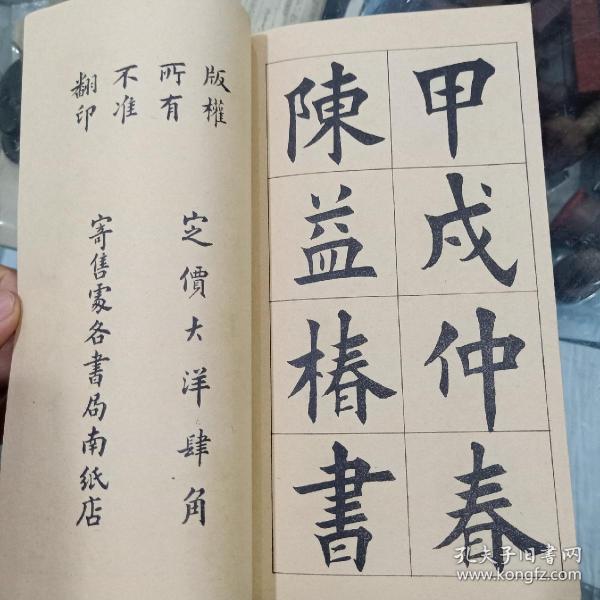 甲戌仲春
陳益椿書
版權
所有
不准
翻印
定價大洋肆角
寄售處各書局南紙店
孔夫子旧书网
www.kongfz.com